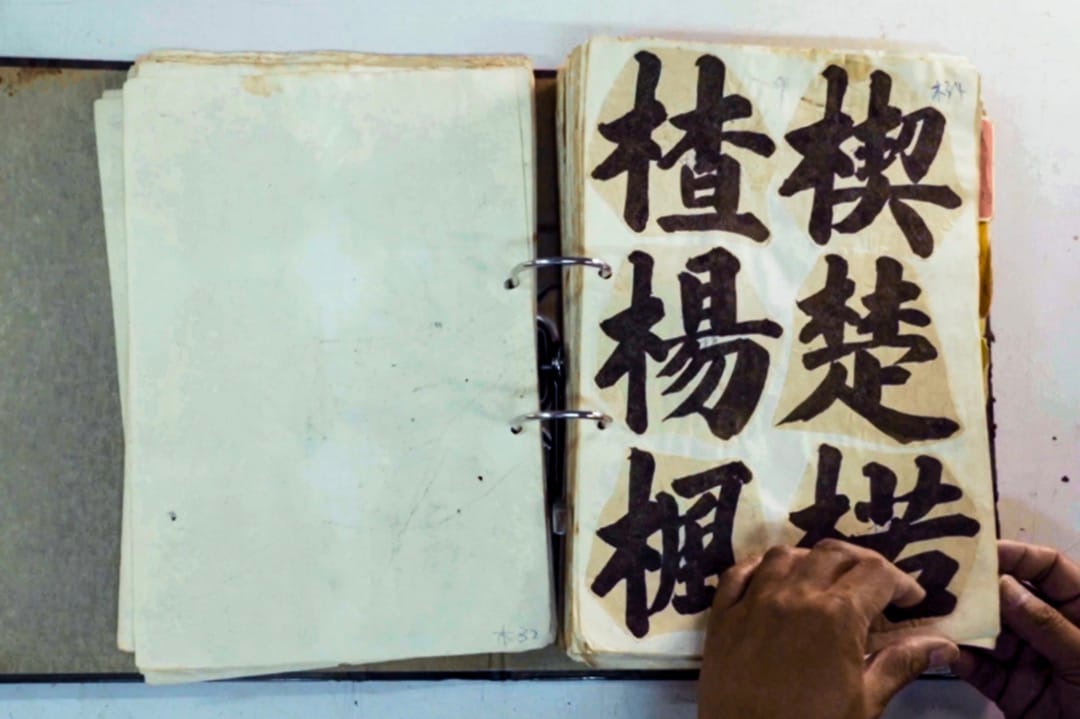 木34
楔楚楉
楂楊楓
木32